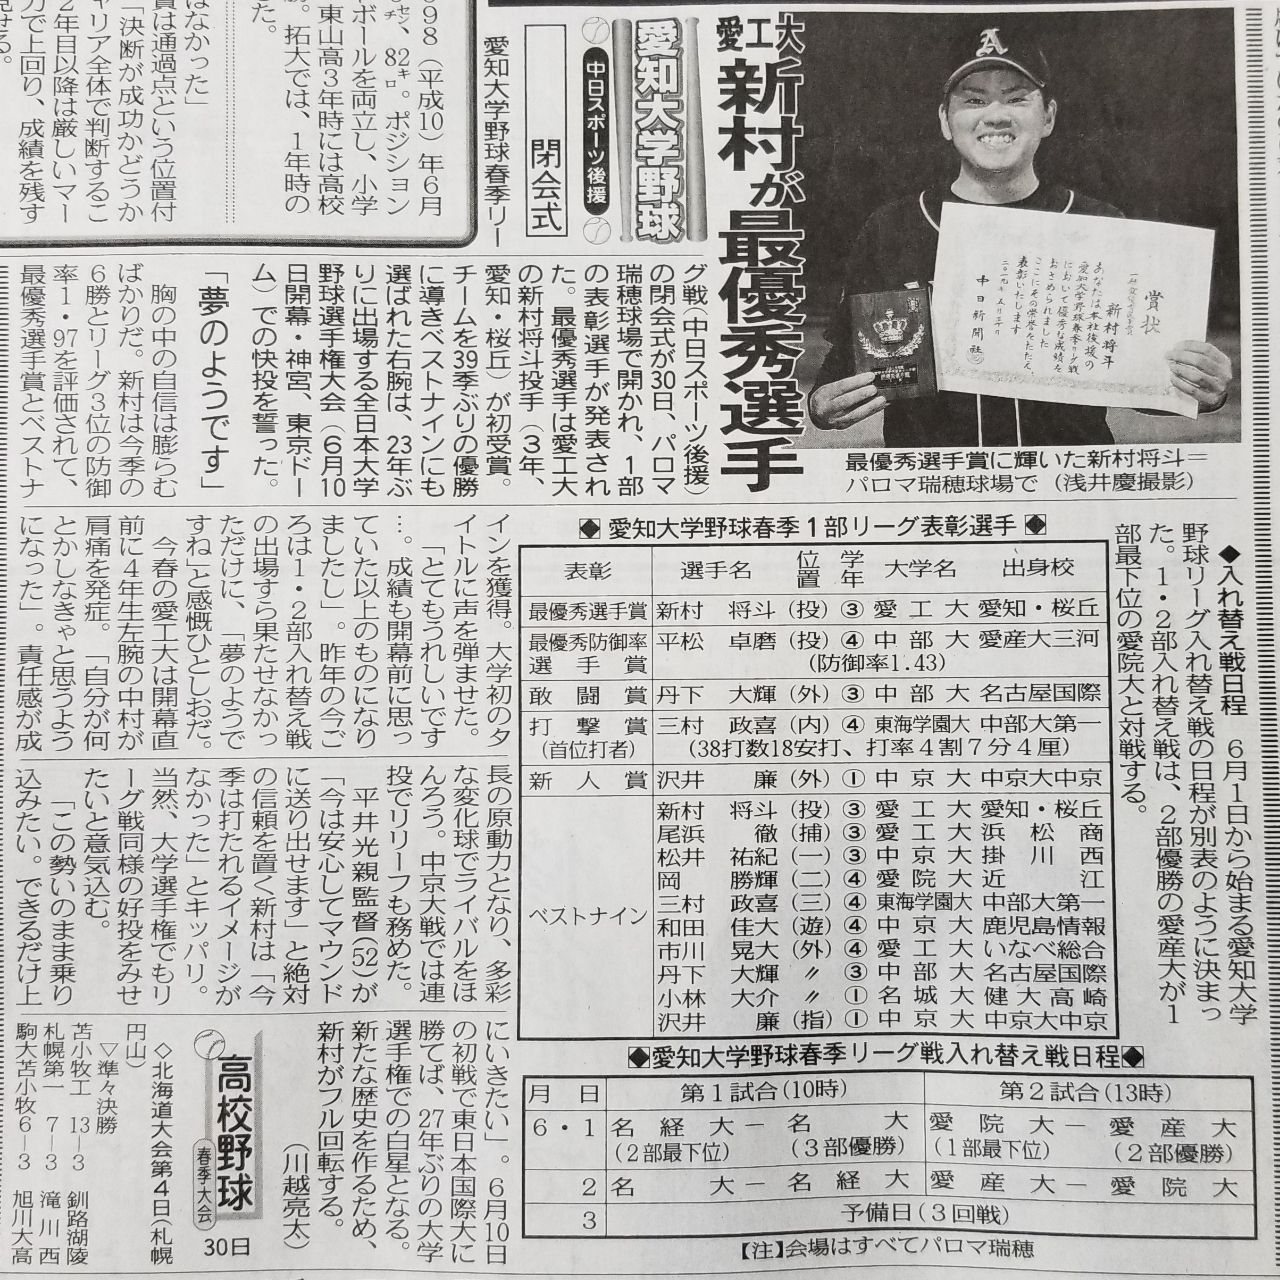 愛工大
新村が最優秀選手
愛知大学野球
中日スポーツ後援
閉会式
賞状
新村将斗
あなたは本社後援の
愛知大学野球春季リーグ戦
において優秀な成績を
おさめられました
ここにその栄誉をたたえ
表彰いたします
中日新聞社
最優秀選手賞に輝いた新村将斗＝
パロマ瑞穂球場で（浅井慶撮影）
愛知大学野球春季リー
グ戦（中日スポーツ後援）
の閉会式が30日、パロマ
瑞穂球場で開かれ、1部
の表彰選手が発表され
た。最優秀選手は愛工大
の新村将斗投手（3年、
愛知・桜丘）が初受賞。
チームを39季ぶりの優勝
に導きベストナインにも
選ばれた右腕は、23年ぶ
りに出場する全日本大学
野球選手権大会（6月10
日開幕・神宮、東京ドー
ム）での快投を誓った。
「夢のようです」
胸の中の自信は膨らむ
ばかりだ。新村は今季の
6勝とリーグ3位の防御
率1・97を評価されて、
最優秀選手賞とベストナ
インを獲得。大学初のタ
イトルに声を弾ませた。
「とてもうれしいです
…。成績も開幕前に思っ
ていた以上のものになり
ましたし」。昨年の今ご
ろは1・2部入れ替え戦
の出場すら果たせなかっ
ただけに、「夢のようで
すね」と感慨ひとしおだ。
今春の愛工大は開幕直
前に4年生左腕の中村が
肩痛を発症。「自分が何
とかしなきゃと思うよう
になった」。責任感が成
長の原動力となり、多彩
な変化球でライバルをほ
んろう。中京大戦では連
投でリリーフも務めた。
平井光親監督（52）が
「今は安心してマウンド
に送り出せます」と絶対
の信頼を置く新村は「今
季は打たれるイメージが
なかった」とキッパリ。
当然、大学選手権でもリ
ーグ戦同様の好投をみせ
たいと意気込む。
「この勢いのまま乗り
込みたい。できるだけ上
にいきたい」。6月10日
の初戦で東日本国際大に
勝てば、27年ぶりの大学
選手権での白星となる。
新たな歴史を作るため、
新村がフル回転する。
（川越亮太）
◆愛知大学野球春季1部リーグ表彰選手◆
表彰 選手名 位置 学年 大学名 出身校
最優秀選手賞 新村 将斗（投）③ 愛工大 愛知・桜丘
最優秀防御率選手賞 平松 卓磨（投）④ 中部大 愛産大三河
（防御率1.43）
敢闘賞 丹下 大輝（外）③ 中部大 名古屋国際
打撃賞（首位打者） 三村 政喜（内）④ 東海学園大 中部大第一
（38打数18安打、打率4割7分4厘）
新人賞 沢井 廉（外）① 中京大 中京大中京
ベストナイン
新村 将斗（投）③ 愛工大 愛知・桜丘
尾浜 徹（捕）③ 愛工大 浜松商
松井 祐紀（一）③ 中京大 掛川西
岡 勝輝（二）④ 愛院大 近江
三村 政喜（三）④ 東海学園大 中部大第一
和田 佳大（遊）④ 中京大 鹿児島情報
市川 晃大（外）④ 愛工大 いなべ総合
丹下 大輝 〃 ③ 中部大 名古屋国際
小林 大介 〃 ① 名城大 健大高崎
沢井 廉（指）① 中京大 中京大中京
◆入れ替え戦日程 6月1日から始まる愛知大学
野球リーグ入れ替え戦の日程が別表のように決まっ
た。1・2部入れ替え戦は、2部優勝の愛産大が1
部最下位の愛院大と対戦する。
◆愛知大学野球春季リーグ戦入れ替え戦日程◆
月日 第1試合（10時） 第2試合（13時）
6・1 名経大－名大 愛院大－愛産大
（2部最下位）（3部優勝）（1部最下位）（2部優勝）
2 名大－名経大 愛産大－愛院大
3 予備日（3回戦）
【注】会場はすべてパロマ瑞穂
高校野球
春季大会
30日
◇北海道大会第4日（札幌
円山）
▽準々決勝
苫小牧工 13－3 釧路湖陵
札幌第一 7－3 滝川西
駒大苫小牧 6－3 旭川大高
998（平成10）年6月
センチ、82キロ。ポジション
ボールを両立し、小学
東山高3年時には高校
。拓大では、1年時の
た。
はなかった」
賞は通過点という位置付
「決断が成功かどうか
ャリア全体で判断するこ
2年目以降は厳しいマー
力で上回り、成績を残す
見せる。